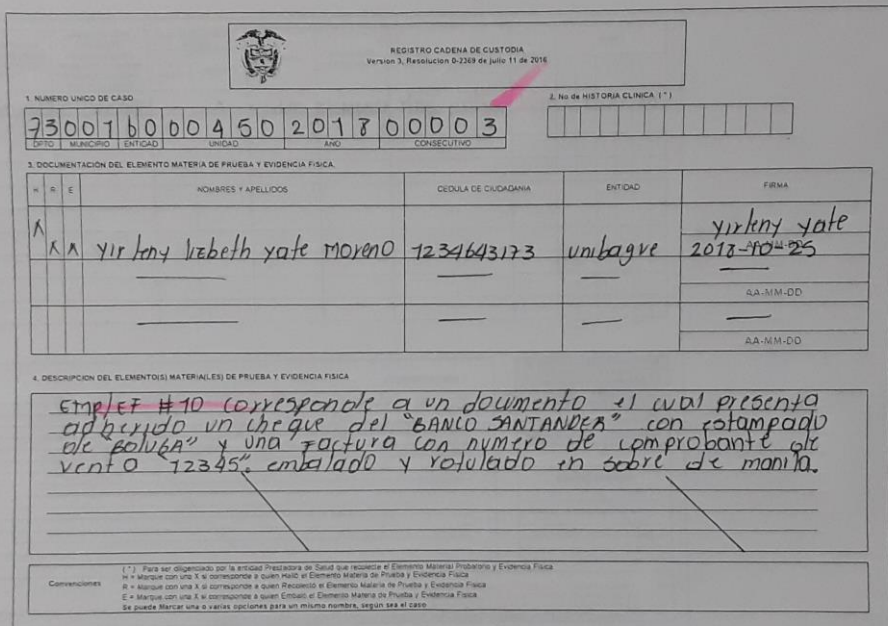 REGISTRO CADENA DE CUSTODIA
Version 3, Resolucion 0-2369 de julio 11 de 2016
1. NUMERO UNICO DE CASO
2. No de HISTORIA CLINICA (*)
73 001 60 00450 2018 00003
DPTO MUNICIPIO ENTIDAD UNIDAD AÑO CONSECUTIVO
3. DOCUMENTACION DEL ELEMENTO MATERIA DE PRUEBA Y EVIDENCIA FISICA
H R E NOMBRES Y APELLIDOS CEDULA DE CIUDADANIA ENTIDAD FIRMA
X X X Yirleny lizbeth yate moreno 1234643173 unibague yirleny yate
2018-10-25
AA-MM-DD
AA-MM-DD
4. DESCRIPCION DEL ELEMENTO(S) MATERIAL(ES) DE PRUEBA Y EVIDENCIA FISICA
EMP/EF #10 corresponde a un documento el cual presenta
adherido un cheque del "BANCO SANTANDER" con estampado
de "BOLUGA" y una factura con numero de comprobante de
vento "12345". embalado y rotulado en sobre de manila.
Convenciones
(*) Para ser diligenciado por la entidad Prestadora de Salud que recolecte el Elemento Material Probatorio y Evidencia Fisica
H = Marque con una X si corresponde a quien Halló el Elemento Materia de Prueba y Evidencia Fisica
R = Marque con una X si corresponde a quien Recolectó el Elemento Materia de Prueba y Evidencia Fisica
E = Marque con una X si corresponde a quien Embaló el Elemento Materia de Prueba y Evidencia Fisica
Se puede Marcar una o varias opciones para un mismo nombre, según sea el caso